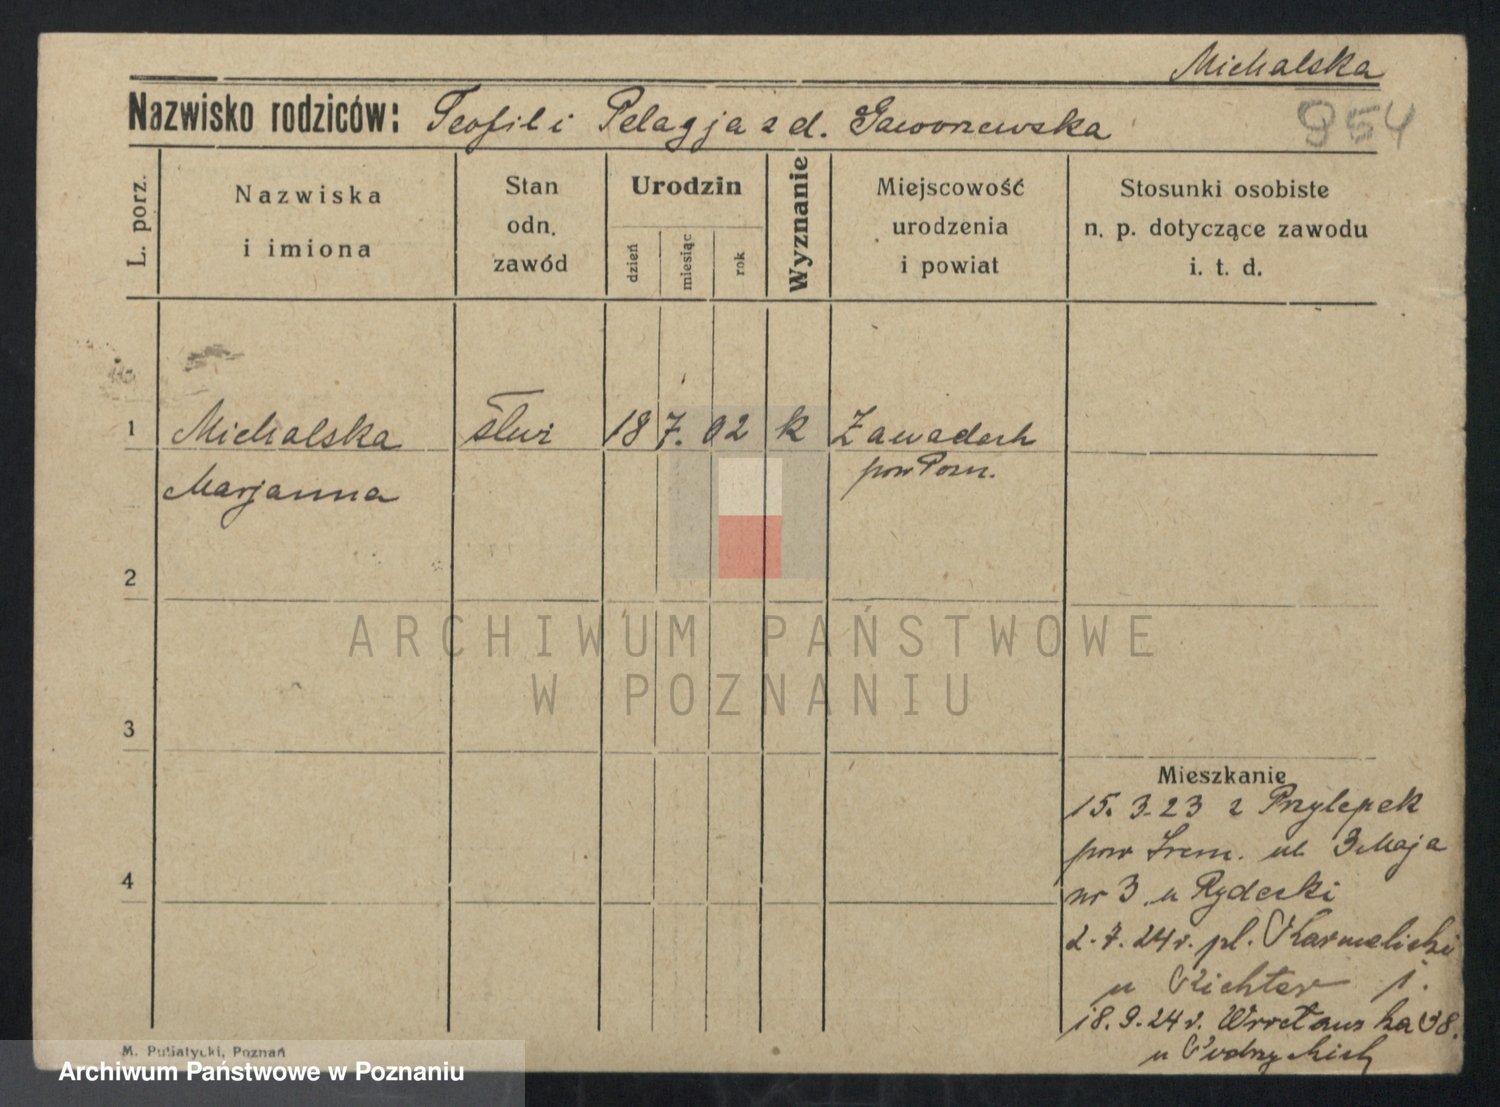 Michalska
Nazwisko rodziców: Teofil i Pelagja z d. Gaworzewska
954
L. porz.
Nazwiska
i imiona
Stan
odn.
zawód
Urodzin
dzień
miesiąc
rok
Wyznanie
Miejscowość
urodzenia
i powiat
Stosunki osobiste
n. p. dotyczące zawodu
i. t. d.
1 Michalska służ 18 7. 02 k Zawadach
Marjanna pow Pozn.
2
3
4
ARCHIWUM PAŃSTWOWE
W POZNANIU
Mieszkanie
15. 3. 23 z Przylepek
pow Śrem. ul 3 Maja
nr 3 u Rydecki
2. 7. 24 r. pl. Karmelicki
u Richter 1.
18. 9. 24 r. Wrocławska 38.
u
M. Putiatycki, Poznań
Archiwum Państwowe w Poznaniu